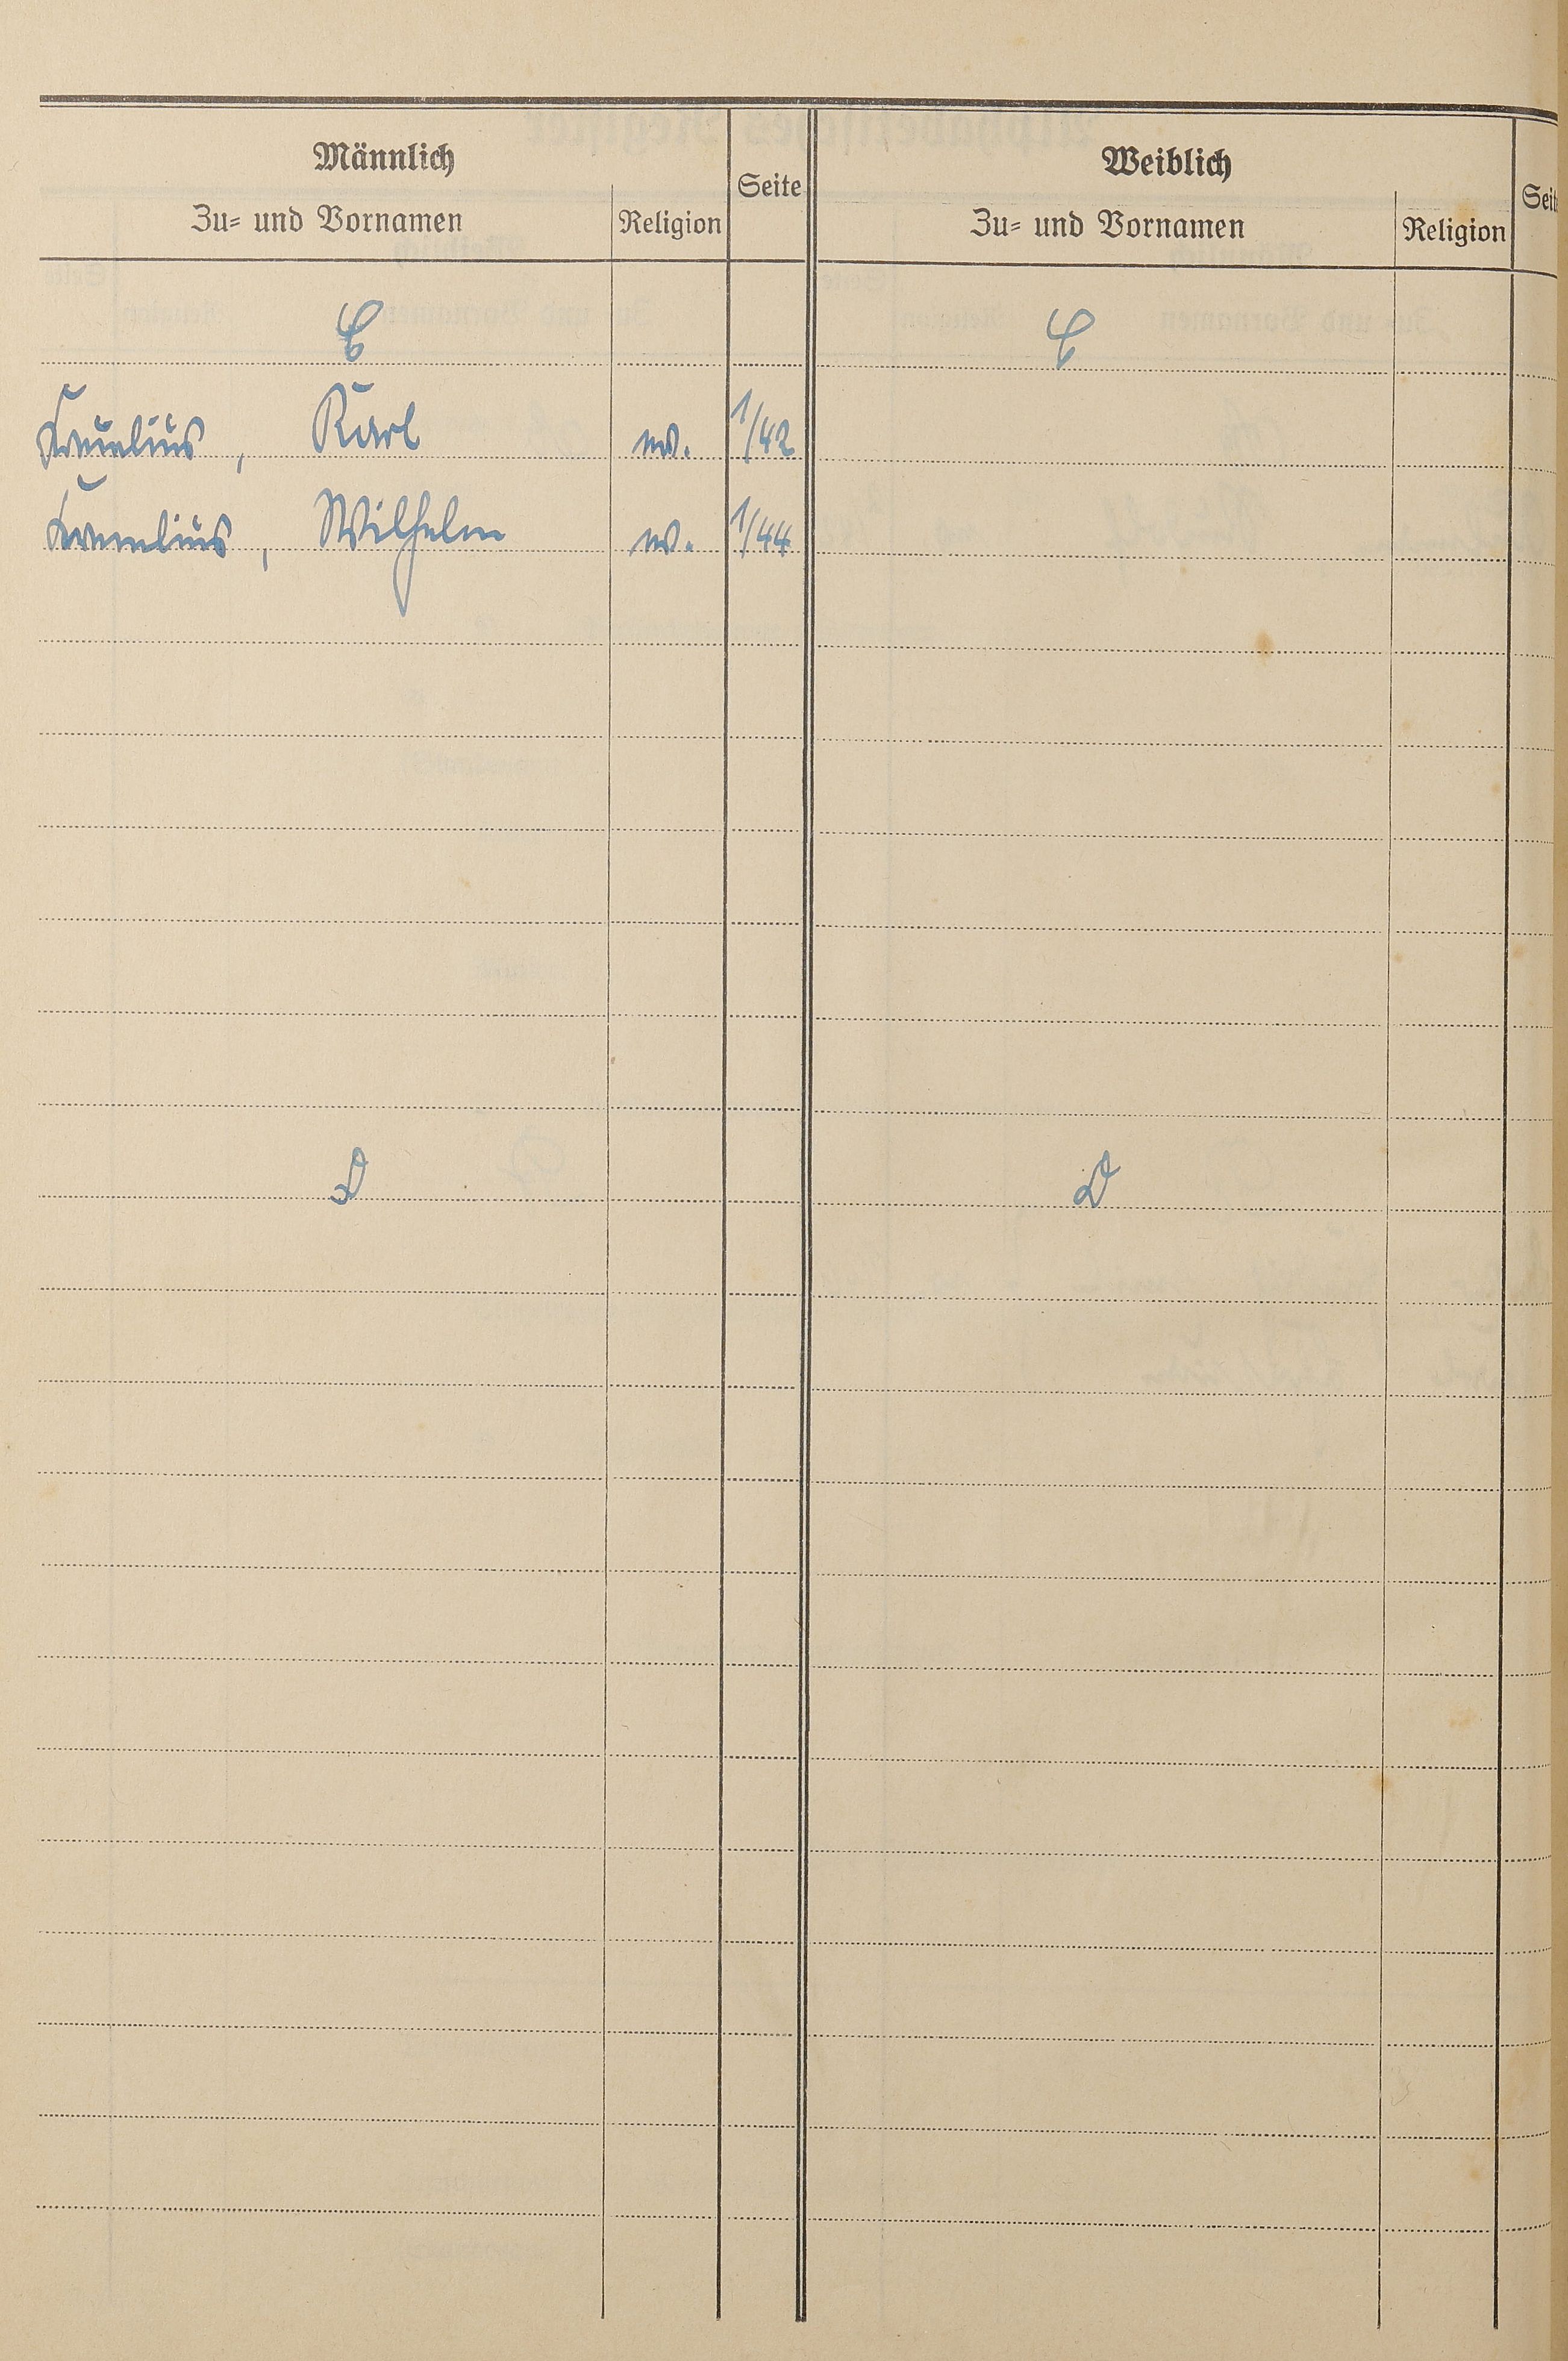 Männlich
Zu- und Vornamen
Religion
Seite
Weiblich
Zu- und Vornamen
Religion
C
C
Cornelius, Karl ev. 1/42
Cornelius, Wilhelm ev. 1/44
D
D